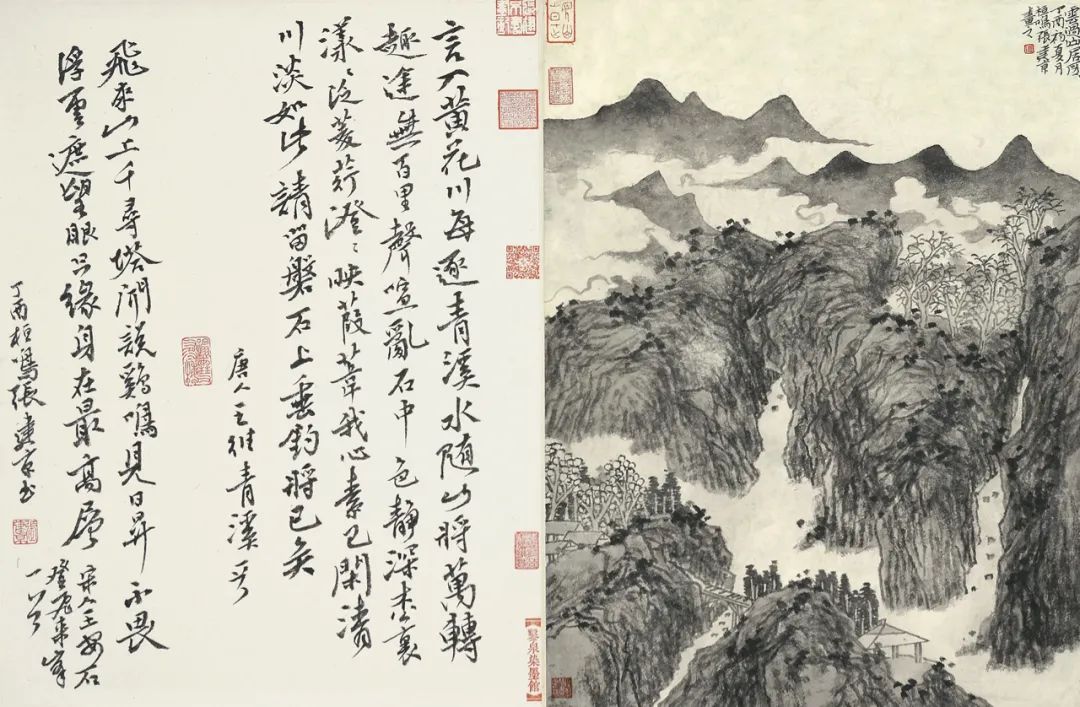 雲山居圖
丁酉初夏月
桓鳴張建京
畫之
言入黄花川每逐青溪水随山將萬轉
趣途無百里聲喧亂石中色靜深松裏
漾〻泛菱荇澄〻映葭葦我心素已閑清
川淡如此請留磐石上垂釣將已矣
唐人王維青溪
飛來山上千尋塔聞説鷄鳴見日昇不畏
浮雲遮望眼只緣身在最高層
宋人王安石
登飛来峰
一首
丁酉桓鳴張建京書
泉染墨館